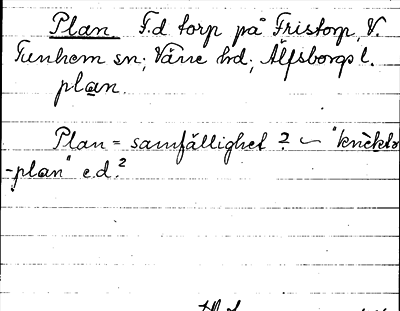 Plan F.d torp på Fristorp, V.
Tunhem sn; Väne hd; Älfsborgs l.
plan.
Plan = samfällighet ? ~ "knekts
-plan" e.d.?